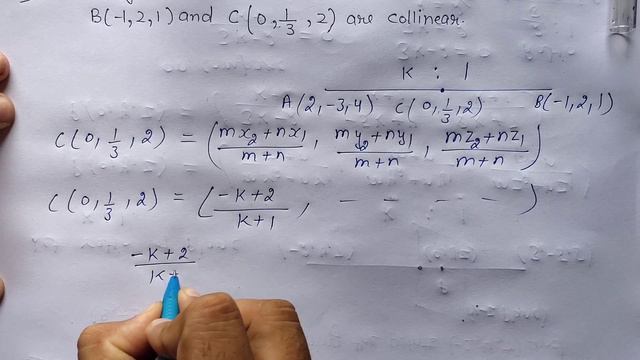 B(-1,2,1) and C(0, 1/3, 2) are collinear.
K : 1
A(2,-3,4) C(0, 1/3, 2) B(-1,2,1)
C(0, 1/3, 2) = ( (mx₂+nx₁)/(m+n), (my₂+ny₁)/(m+n), (mz₂+nz₁)/(m+n) )
C(0, 1/3, 2) = ( (-K+2)/(K+1), - - - - )
(-K+2)/(K+